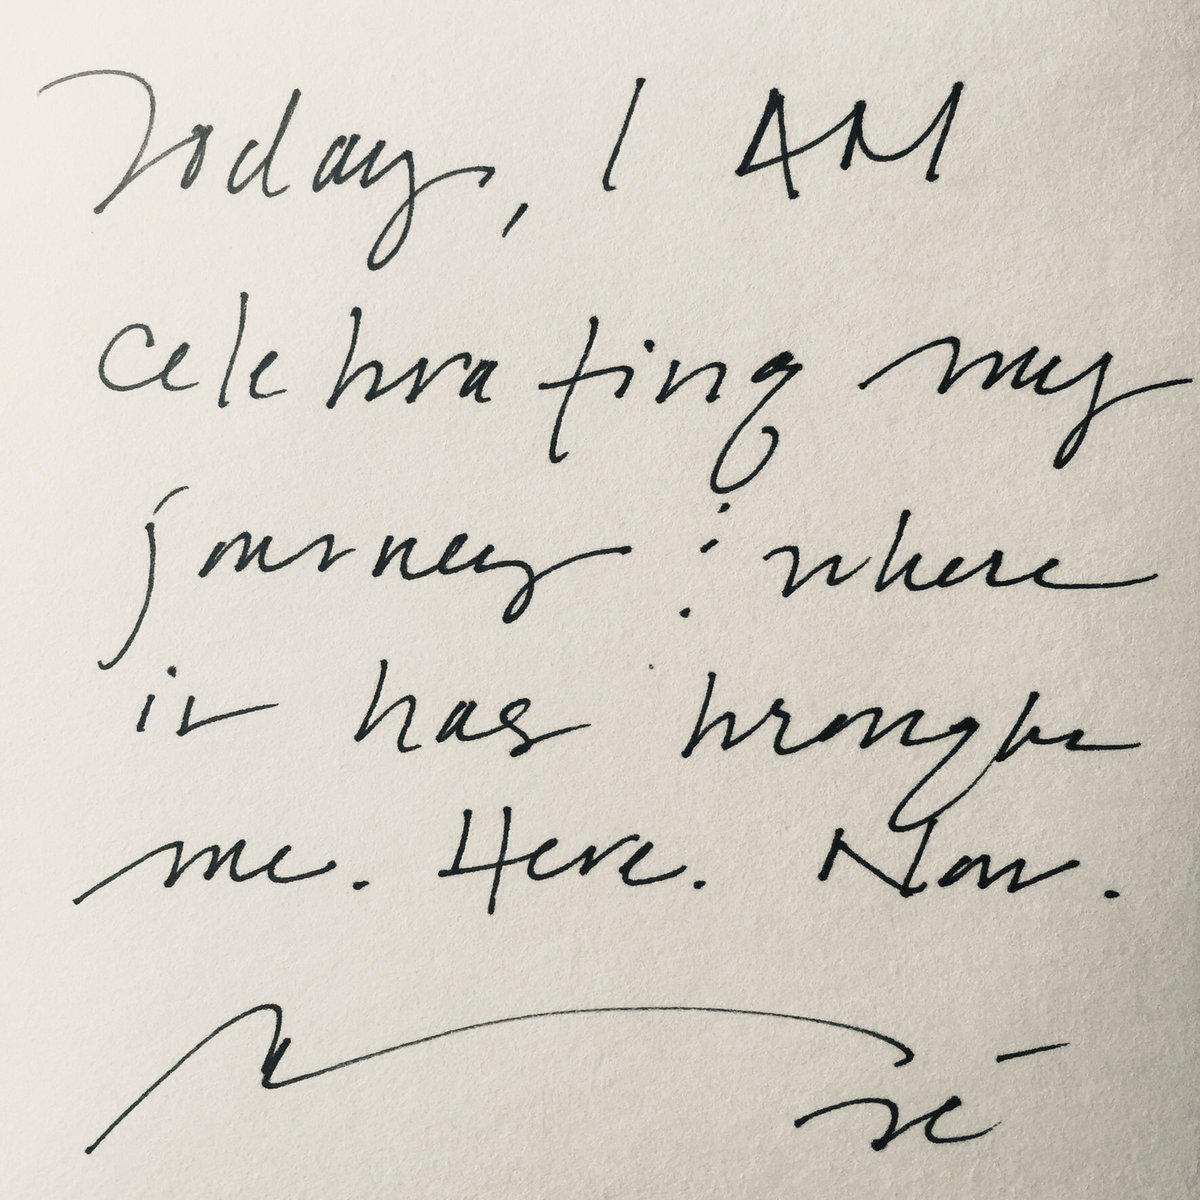 Today, I AM
celebrating my
journey : where
it has brought
me. Here. Now.